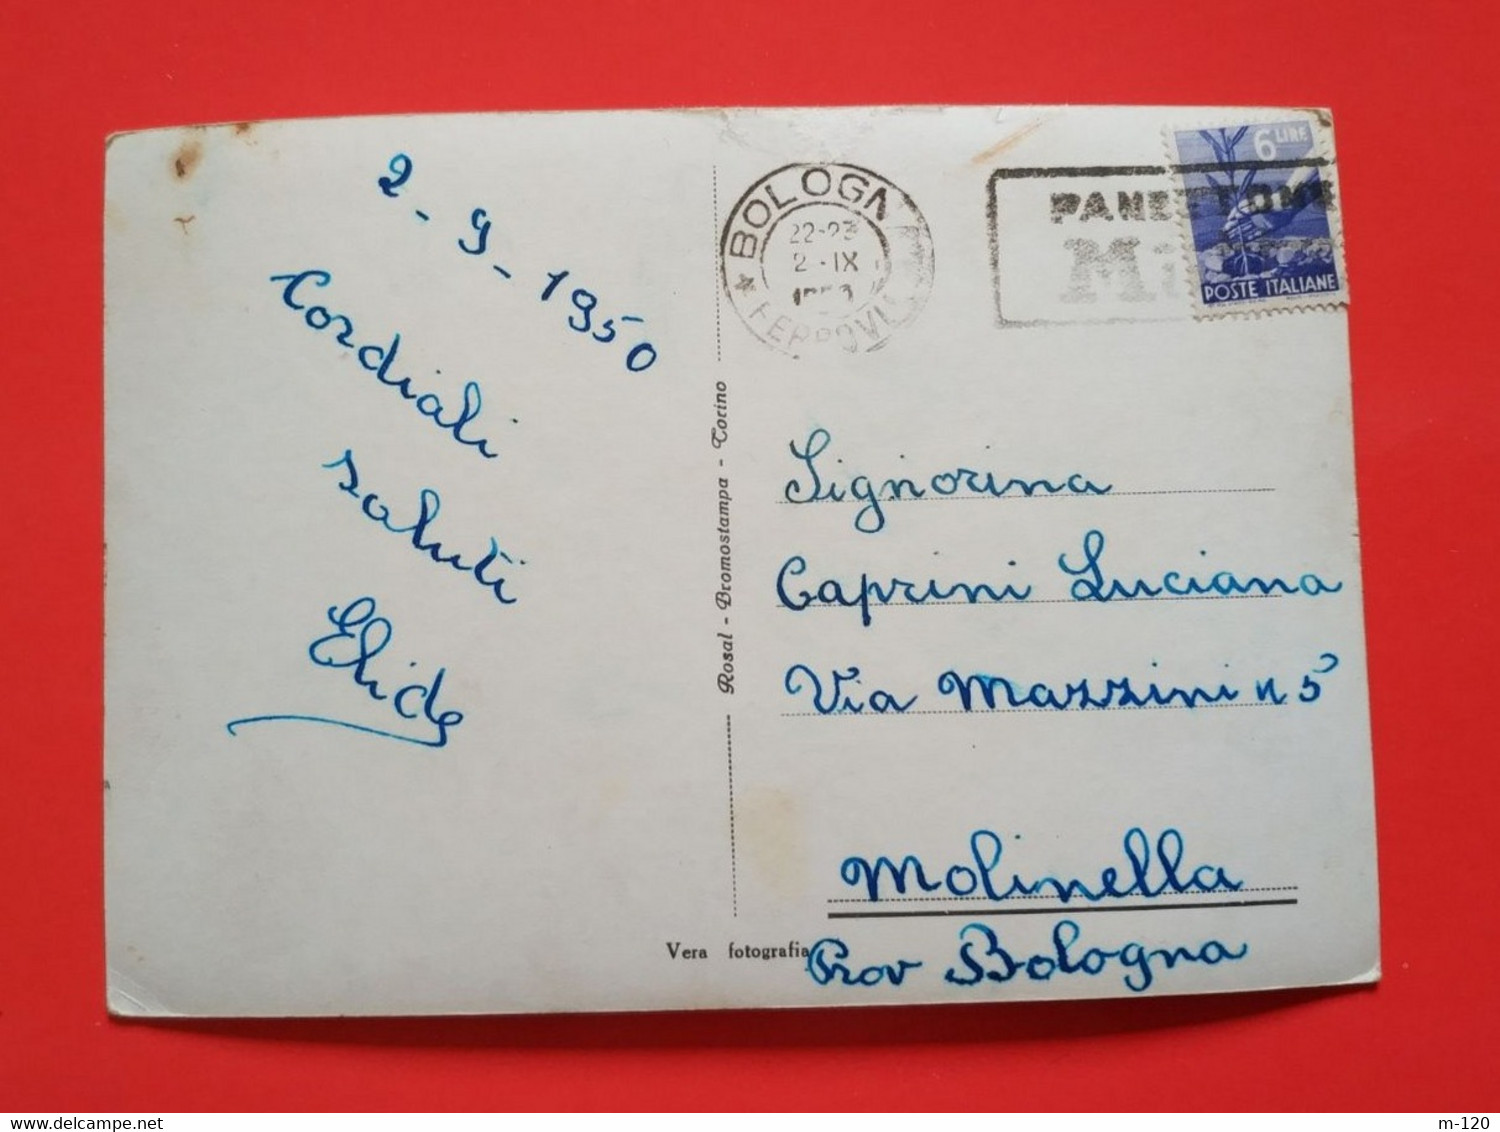 2-9-1950
Cordiali
saluti
Elide
BOLOGNA
22-23
2-IX
FERROVIA
PANETTONE
6 LIRE
POSTE ITALIANE
Rosal - Bromostampa - Torino
Signorina
Caprini Luciana
Via Mazzini n 5
Molinella
Prov Bologna
Vera fotografia
delcampe.net
m-120